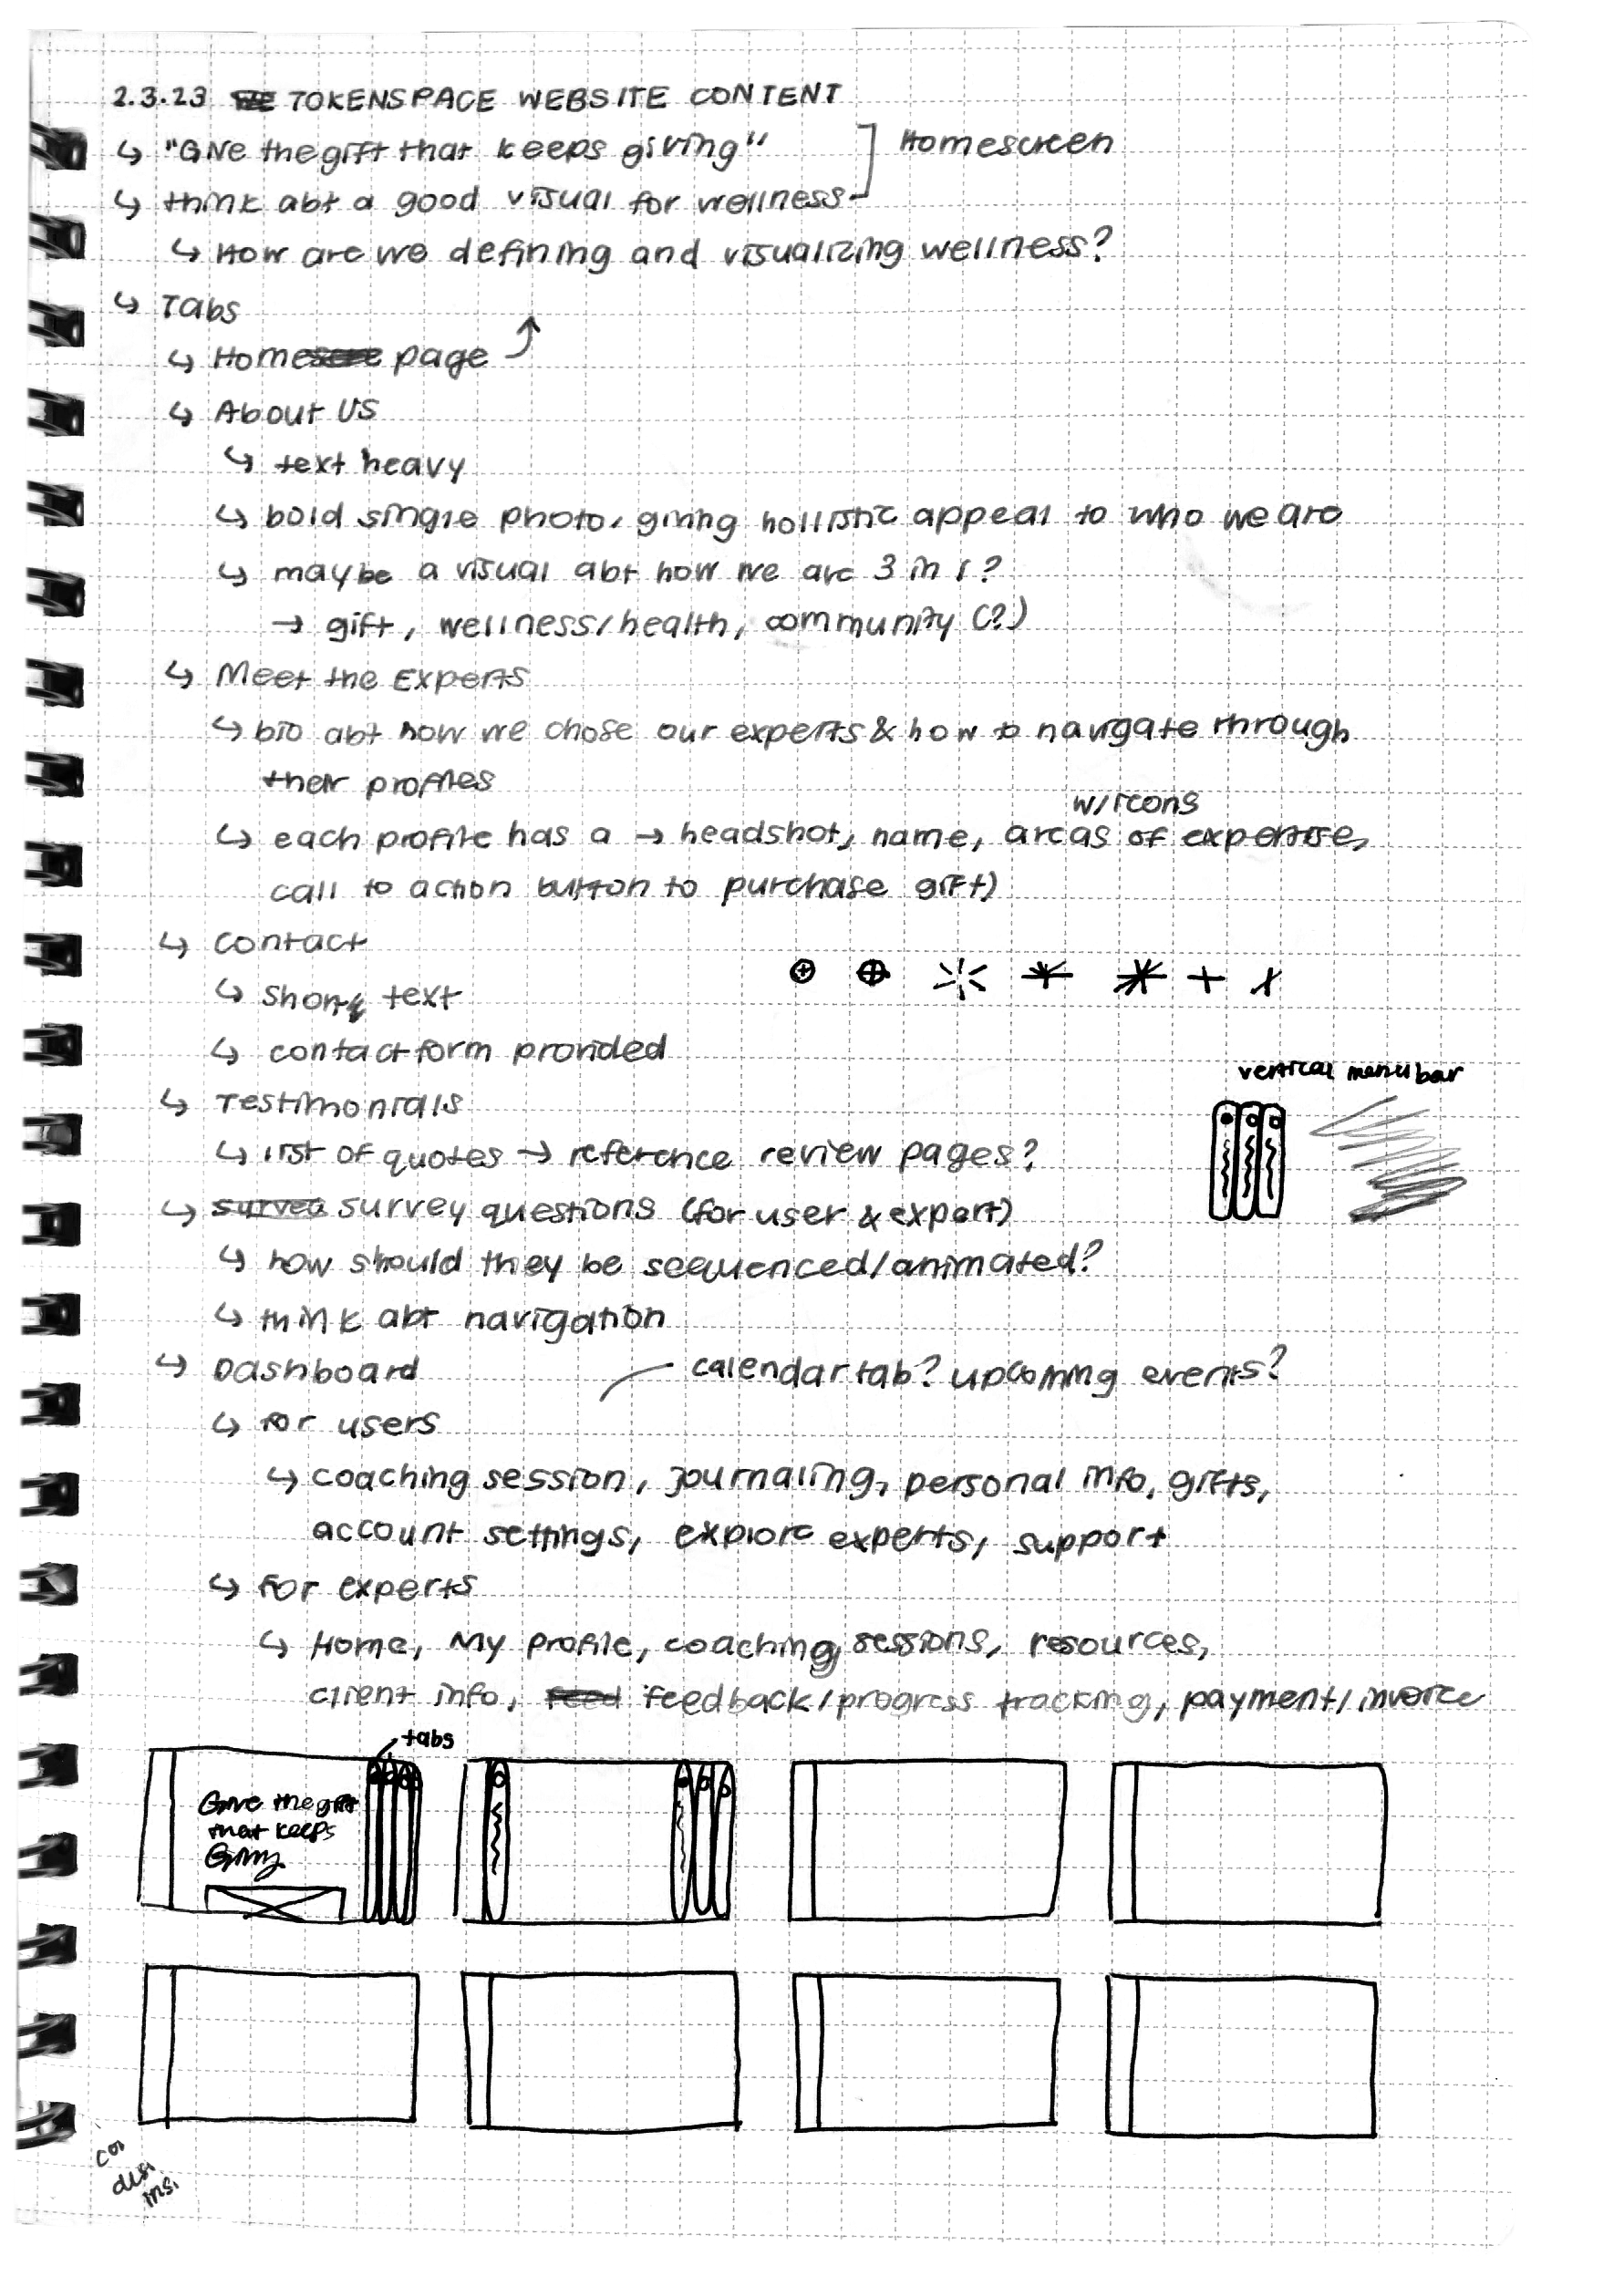 2.3.23 TOKENSPACE WEBSITE CONTENT
↳ "Give the gift that keeps giving"
Homescreen
↳ think abt a good visual for wellness
↳ How are we defining and visualizing wellness?
↳ Tabs
↳ Home page
↳ About US
↳ text heavy
↳ bold single photo, giving hollistic appeal to who we are
↳ maybe a visual abt how we are 3 in 1?
→ gift, wellness/health, community (?)
↳ Meet the Experts
↳ bio abt how we chose our experts & how to navigate through
their profiles
w/icons
↳ each profile has a → headshot, name, areas of expertise,
call to action button to purchase gift)
↳ contact
↳ short text
↳ contact form provided
vertical menu bar
↳ Testimonials
↳ list of quotes → reference review pages?
↳ survey questions (for user & expert)
↳ how should they be sequenced/animated?
↳ think abt navigation
↳ Dashboard
calendar tab? upcoming events?
↳ for users
↳ coaching session, journaling, personal info, gifts,
account settings, explore experts, support
↳ for experts
↳ Home, My profile, coaching sessions, resources,
client info, feedback/progress tracking, payment/invoice
tabs
Give the gift
that keeps
Giving